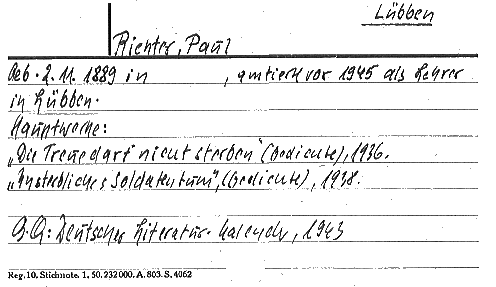 Lübben
Richter, Paul
Geb. 2. 11. 1889 in , amtiert vor 1945 als Lehrer
in Lübben.
Hauptwerke:
„Die Treue darf nicht sterben" (Gedichte), 1936.
„Unsterbliches Soldatentum", (Gedichte), 1938.
Q.Q.: Deutscher Literatur-Kalender, 1943
Reg. 10, Stichnote. 1, 50. 232 000. A. 803. S. 4062